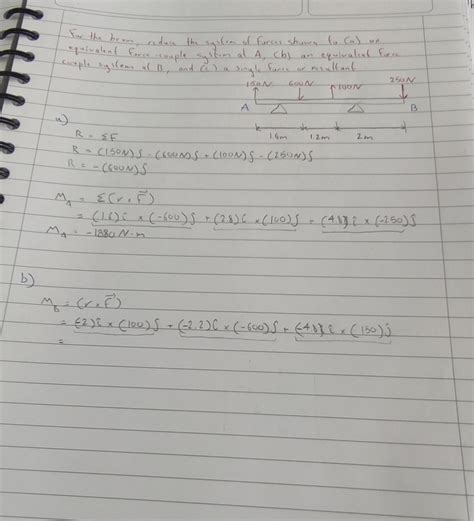 For the beam, reduce the system of forces shown to (a) an
equivalent force-couple system at A, (b) an equivalent force
couple system at B, and (c) a single force or resultant
150N 600N 100N 250N
A B
1.6m 1.2m 2m
a)
R = ΣF
R = (150N)ĵ - (600N)ĵ + (100N)ĵ - (250N)ĵ
R = -(600N)ĵ
M_A = Σ(r × F)
= (1.6)î × (-600)ĵ + (2.8)î × (100)ĵ + (4.8)î × (-250)ĵ
M_A = -1880 N·m
b)
M_B = (r × F)
= (-2)î × (100)ĵ + (-2.2)î × (-600)ĵ + (-4.8)î × (150)ĵ
=